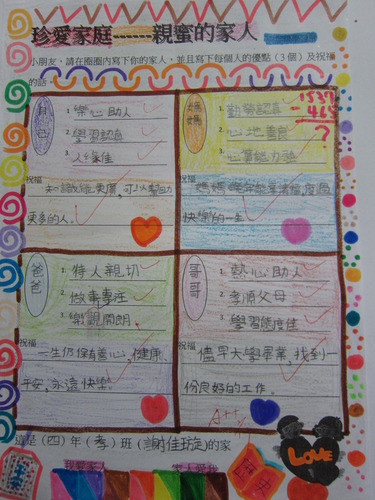 珍愛家庭------親蜜的家人
小朋友，請在圈圈內寫下你的家人，並且寫下每個人的優點（3個）及祝福
的話。
自己
1. 樂心助人
2. 學習認真
3. 人緣佳
祝福
知識能更廣，可以幫助
更多的人。
媽媽
1. 勤勞認真
2. 心地善良
3. 心算能力強
537
- 465
?
祝福
媽媽
快樂的一生
爸爸
1. 待人親切
2. 做事專注
3. 樂觀開朗
祝福
一生仍保有善心，健康、
平安，永遠快樂。
哥哥
1. 熱心助人
2. 孝順父母
3. 學習態度佳
祝福
儘早大學畢業，找到一
份良好的工作。
A++
這是（四）年（孝）班（謝佳璇）的家
我愛家人 家人愛我
LOVE